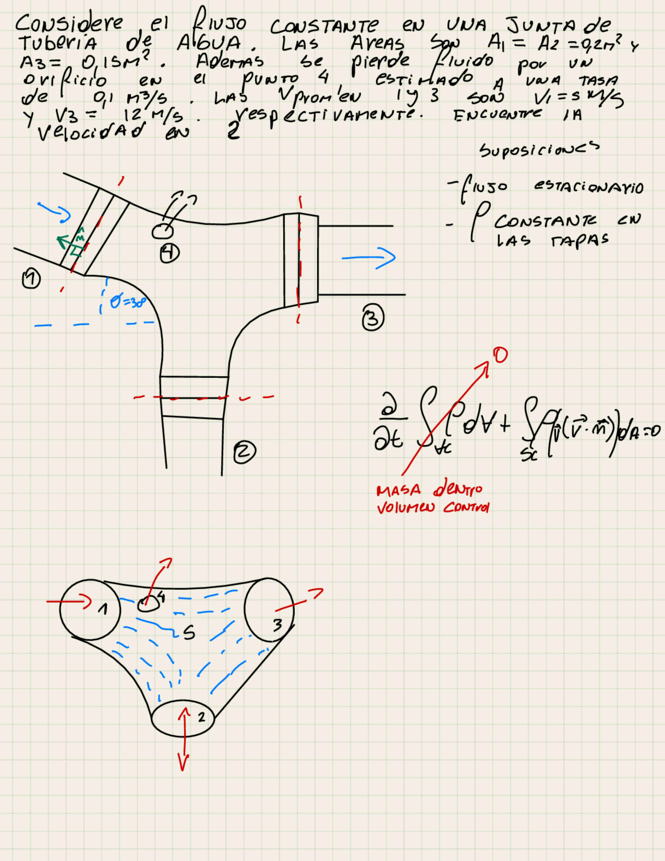 Considere el flujo CONSTANTE EN UNA JUNTA de
TUBERIA de AGUA. LAS AREAS SON A1 = A2 = 0,2m² y
A3 = 0,15m². Ademas se pierde fluido por un
orificio en el punto 4, estimado A UNA TASA
de 0,1 m³/s. LAS Vprom en 1 y 3 son V1 = 5 M/s
y V3 = 12 m/s. respectivamente. ENCUENTRE LA
Velocidad en 2
Suposiciones
- flujo ESTACIONARIO
- ρ CONSTANTE EN
LAS TAPAS
1
4
3
2
0
∂/∂t ∫ ρ dV +
dA = 0
MASA dentro
VOLUMEN CONTROL
1
4
S
3
2
V